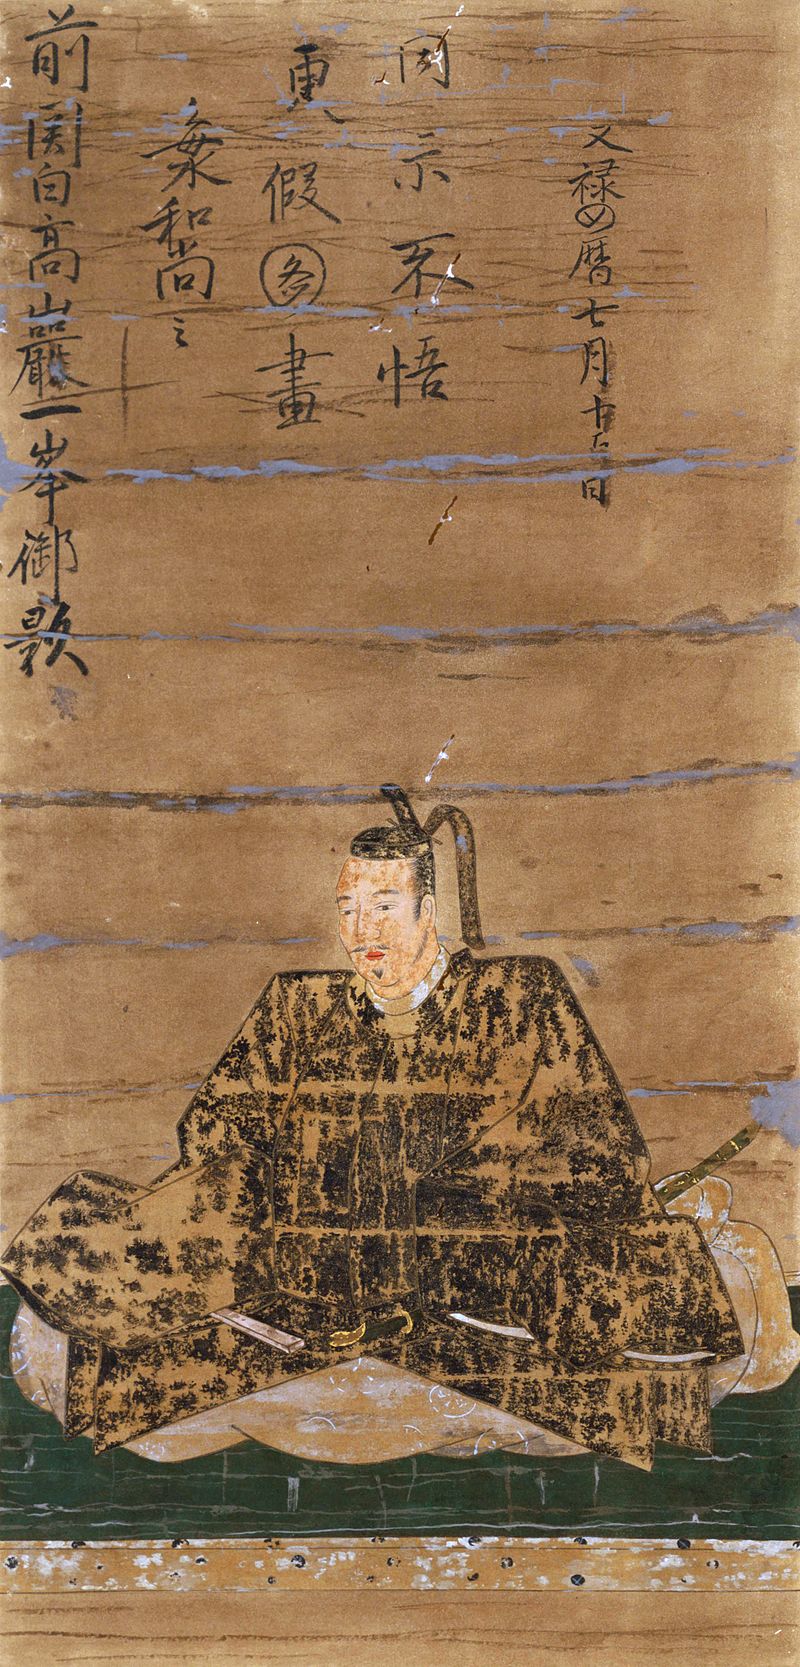 前関白高巖一峯御影
和尚之
更假圖畫
示不悟
文禄四暦七月十五日